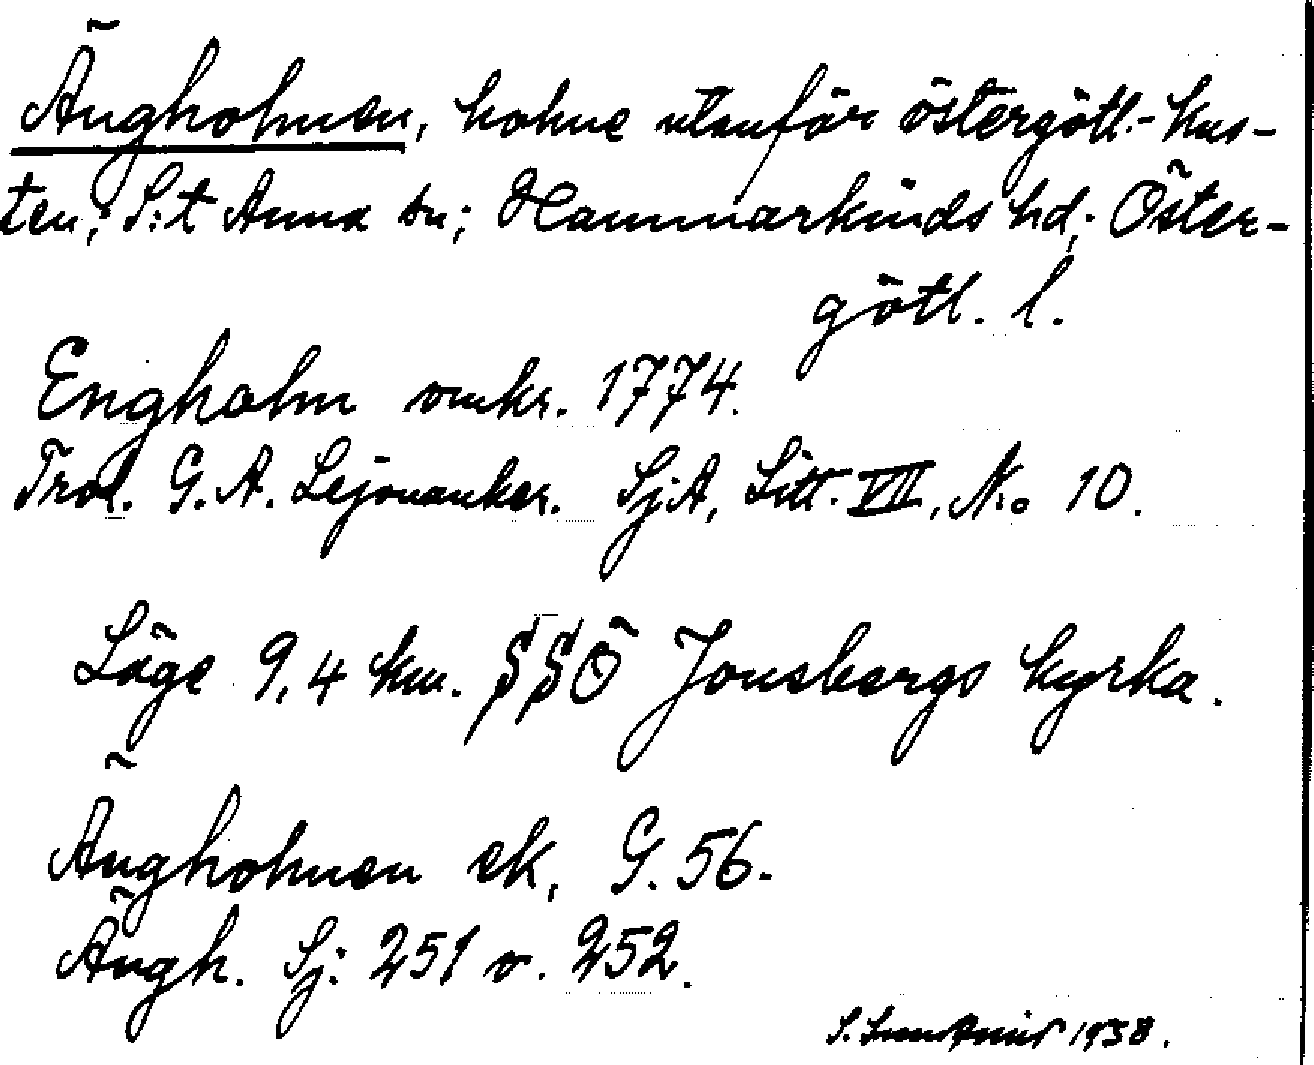 Ängholmen, holme utanför östergötl.-kus-
ten; S:t Anna sn; Hammarkinds hd; Öster-
götl. l.
Engholm omkr. 1774.
Trol. G. A. Lejonanker. SjA, Litt. VII, N:o 10.
Läge 9,4 km. SSÖ Jonsbergs kyrka.
Ängholmen ek, G. 56.
Ängh. Sj: 251 o. 252.
S. 1938.